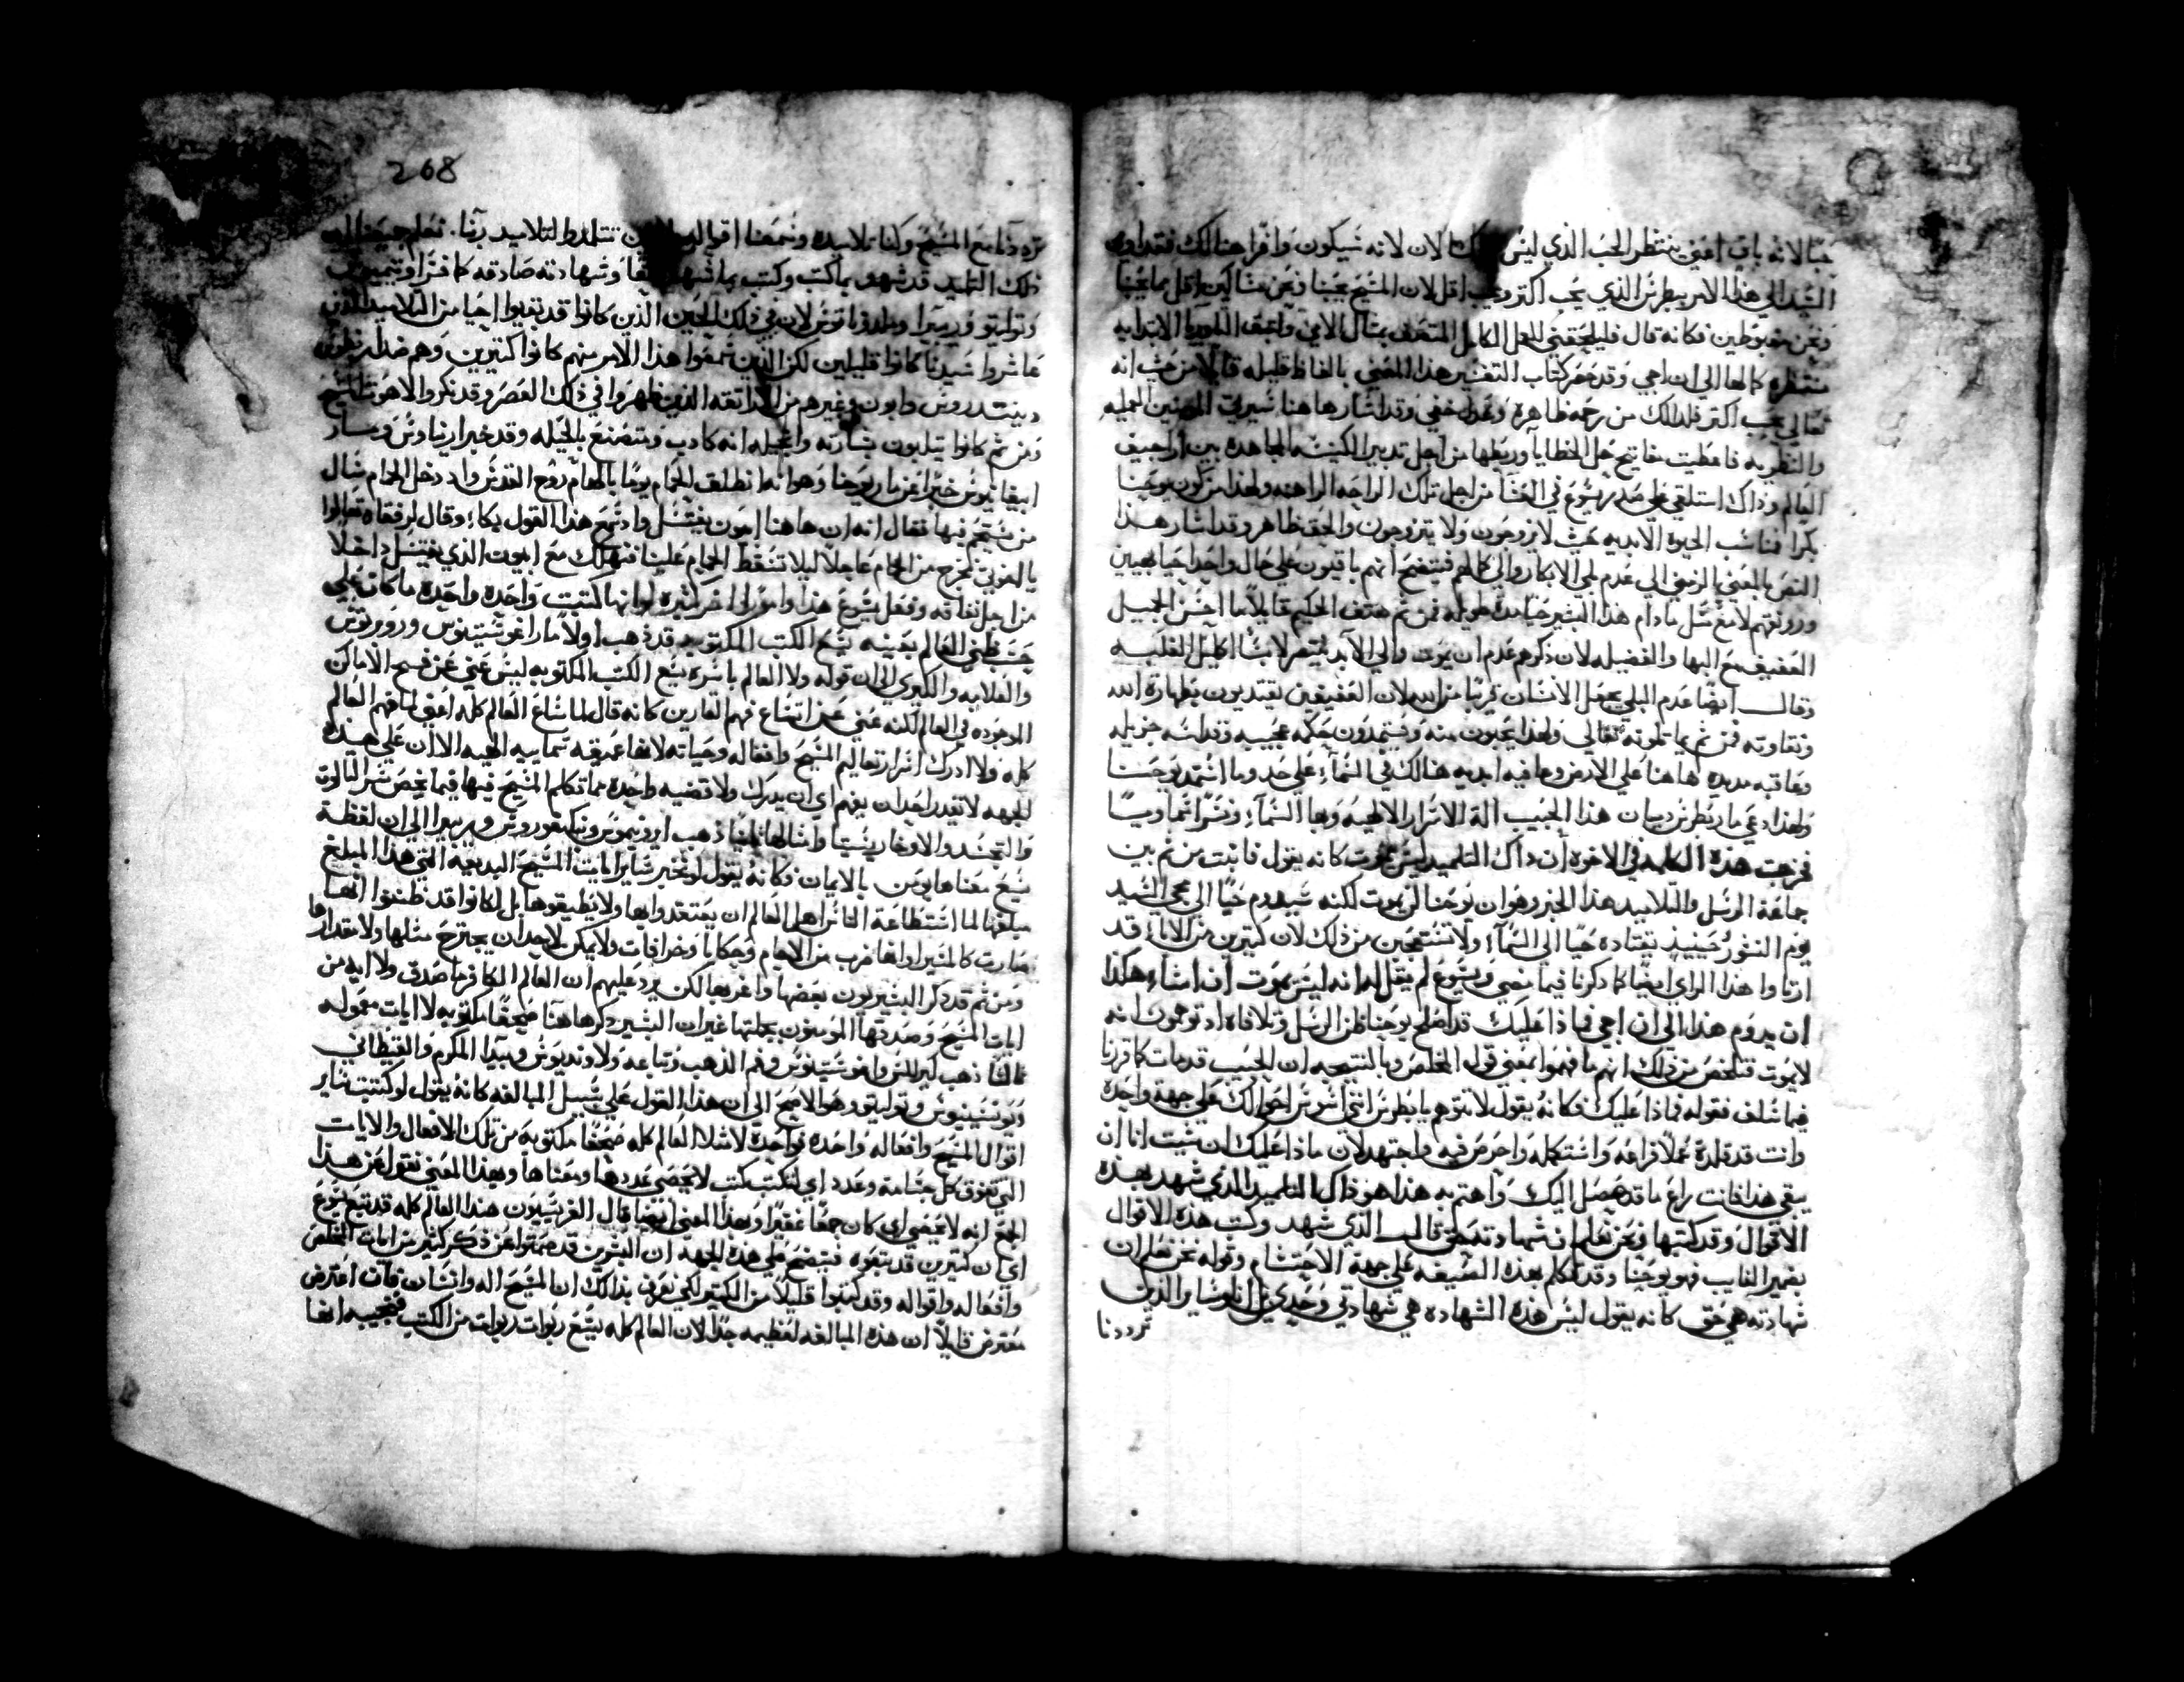 حبا لانه باق اعني ينتظر الحب الذي ليس الان لانه سيكون واقرا هنالك فقد اوري
السيد الي هذا الامر ببطرس الذي يحب اكتر ويحب اقل لان المسيح يحبنا ونحن متاكين اقل مما يحبنا
ونحن مغبوطين فكانه قال فليلحقني العمل الكامل المتصف بمثال الامي واما التاوريا الابتدايه
منتظره كمالها الي ان اجي وقد حصر كتاب التفسير هذا المعني بالفاظ قليله قايلا من حيث انه
تعالي يحب اكتر فلذلك من رحمه ظاهره وعدل خفي وقد اشار هاهنا سيرتي المومنين العمليه
والنظريه فاعطيت مفاتيح حل الخطايا وربطها من اجل تدبير الكنيسه المجاهده بين اراجيف
العالم وذاك استلقي علي صدر يسوع في العشا من اجل تلك الراحه الراهنه ولهذا من كون يوحنا
بكرا فناسب الحيوه الابديه حيث لا يزوجون ولا يتزوجون والحق ظاهر وقد اشار هذا
النص بالمعني الرمزي الي عدم بلي الابكار والي كمالهم فيتضح انهم باقيون علي حال واحد احيا لمجيبن
ورونقهم لا مغتسل مادام هذا البشير حيا مده طويله فمن ثم هتف الحكيم قايلا ما احسن الجيل
العفيف مع البها والفضيله لان ذكرهم عدم ان يموت والي الابد ينتصر لابسا اكليل الغلبه
وقال ايضا عدم البلي يجعل الانسان قريبا من الله لان العفيفين يقتدون بطهارة الله
ونقاوته فمن ثم يماتلونه تعالي ولهذا يحبون منه ويستمدون حكمه عجيبه وقداسه جزيله
وعاقبه مديده هاهنا علي الارض وعافيه ابديه هنالك في السمآء علي حد وما استمد يوحنا
ولهذا دعي مار بطرس دميان هذا الحبيب الة الاسرار الالهية وبها السمآء ونسرا سماويا
فخرجت هذه الكلمه في الاخوه ان ذاك التلميد ليس يموت كانه يقول فانبت من ثم بين
جماعة الرسل والتلاميد هذا الخبر وهو ان يوحنا لن يموت لكنه سيدوم حيا الي مجي السيد
يوم النشور حينيذ يقتاده حيا الي السمآء ولا تستعجبن من ذلك لان كتيرين من الاباء قد
ارتاوا هذا الراي ايضا كما ذكرنا فيما مضي ويسوع لم يقل له انه ليس يموت ان انا اشاء هكذا
ان يدوم هذا الي ان اجي فماذا عليك قد اصلح يوحنا ظن الرسل وتلافاه اذ توهموا انه
لا يموت فتلخص من ذلك انهم ما فهموا بمعني قول المخلص وبالنتيجه ان الحبيب قد مات كما قررنا
فيما سلف فقوله فماذا عليك فكانه يقول لا تتوهم يا بطرس انني اسوس احوالك علي جهة واحدة
وانت قد قلدة عملا فراعه واستكمله واحرص فيه واجتهد لان ماذا عليك ان شيت انا ان
يبقي هذا فانت راع ما قد حصل اليك واهتم به هذا هو ذاك التلميد الذي شهد بهذه
الاقوال وقد كتبها ونحن نعلم ان شهادته حق قال الذي شهد وكتب هذه الاقوال
بضمير الغايب فهو يوحنا وقد تكلم بهذه الصيغه علي جهة الاحتشام وقوله نحن نعلم ان
شهادته هي حق كانه يقول ليس هذه الشهاده هي شهادتي وحدي بل انا وساير الذين
ترددنا
268
ترددنا مع المسيح وكنا تلاميده وسمعنا اقواله تتلمدوا لتلاميد ربنا. نعلم جميعنا ان
ذلك التلميد قد شهد بما كتب وكتب بما شهد وشهادته صادقه كما فسر اوتيميوس
وتوليتو وريبيرا ومادوناتوس لان في ذلك الحين الذين كانوا قد بقيوا احيا من التلاميد الذين
عاشروا سيدنا كانوا قليلين لكن الذين سمعوا هذا الامر منهم كانوا كتيرين وهم ضد ارطقة
كيرنتس وابيون وغيرهم من الهراتقه الذين ظهروا في ذلك العصر وقد نكروا لاهوت المسيح
ومن ثم كانوا يتلبون بشارته وانجيله انه كادب ومتصنع بالحيله وقد خبر ارنياوس ومار
ابيفانيوس خبرا عن مار يوحنا وهو انه انطلق للحمام يوما بالهام روح القدس واد دخل الحمام سال
من يستحم فيها فقال انه ان هاهنا ابيون يغتسل واد سمع هذا القول بكاء وقال لرفقاه تعالوا
يا اخوتي لنخرج من الحمام عاجلا ليلا تسقط الحمام علينا فنهلك مع ابيون الذي يغتسل داخلا
من اجل نفاقه وفعل يسوع هذا وامورا اخر كتيره لو انها كتبت واحده واحده ما كان علي
حسب ظني العالم بعينه يسع الكتب المكتوبه قد ذهب اولا مار اغوستينوس وروبرتوس
والعلامه والكيوري الي ان قوله ولا العالم باسره يسع الكتب المكتوبه ليس عني عن فسح الاماكن
الموجوده في العالم لكنه عني عن اتساع فهم القارين كانه قال لما شاع العالم كله اعني لما فهم العالم
كله ولا ادرك اسرار تعاليم المسيح وافعاله وحياته لانها عميقه سماييه الهيه الا ان علي هذه
الجهه لا تقدر احد ان يفهم اي ان يدرك ولا قضيه واحده مما تكلم المسيح فيها فيما يخص سر التالوت
والتجسد والاوخارستيا وامثالها ثانيا ذهب ايرونيموس ونيكيفوروس وريبيرا الي ان لفظة
يسع معناها يومن بالايمان فكانه يقول لو تخبر ساير ايات المسيح البديعه التي هذا المبلغ
مبلغها لما استطاعة الناس اهل العالم ان يعتقدوا بها ولا يطيقوها بل لكانوا قد ظنوا انها
صارت كالمنير او انها ضرب من الاحلام وحكايا وخرافات ولا يمكن لاحد ان يجترح مثلها ولا مقدارها
ومن ثم قد ذكر البشيريون بعضها واغربها لكن يرد عليهم ان العالم الكافر ما صدق ولا ايه من
ايات المسيح وصدقها المومنون بجملتها غير ان البشير ذكر هاهنا صحفا مكتوبه لا ايات معموله
ثالثا ذهب كيرللس واغوستينوس وفم الدهب وتباعه ولاونديوس وبيدا المكرم والقيطاني
ويونسينيوس وتوليتو وهو الاصح الي ان هذا القول علي سبيل المبالغه كانه يقول لو كتبت ساير
اقوال المسيح وافعاله واحده فواحده لامتلا العالم كله صحفا مكتوبه من تلك الافعال والايات
التي تفوق كل جسامه وعدد اي لتكتب كتب لا يحصي عددها ومعناها وبهذا المعني نقول عن هذا
الجمع انه لا يحصي اي كان جمعا غفيرا وبهذا المعني ايضا قال الفريسيون هذا العالم كله قد تبع يسوع
اي ان كتيرين قد تبعوه فيتضح علي هذه الجهه ان البشرين قد صمتوا عن ذكر كتير من ايات المخلص
وافعاله واقواله وقد كتبوا قليلا من الكتير لكي نعرف بذلك ان المسيح اله وانسان فان اعترض
معترض قايلا ان هذه المبالغه لعظيمه جدا لان العالم كله يسع ربوات ربوات من الكتب فنجيبه انها